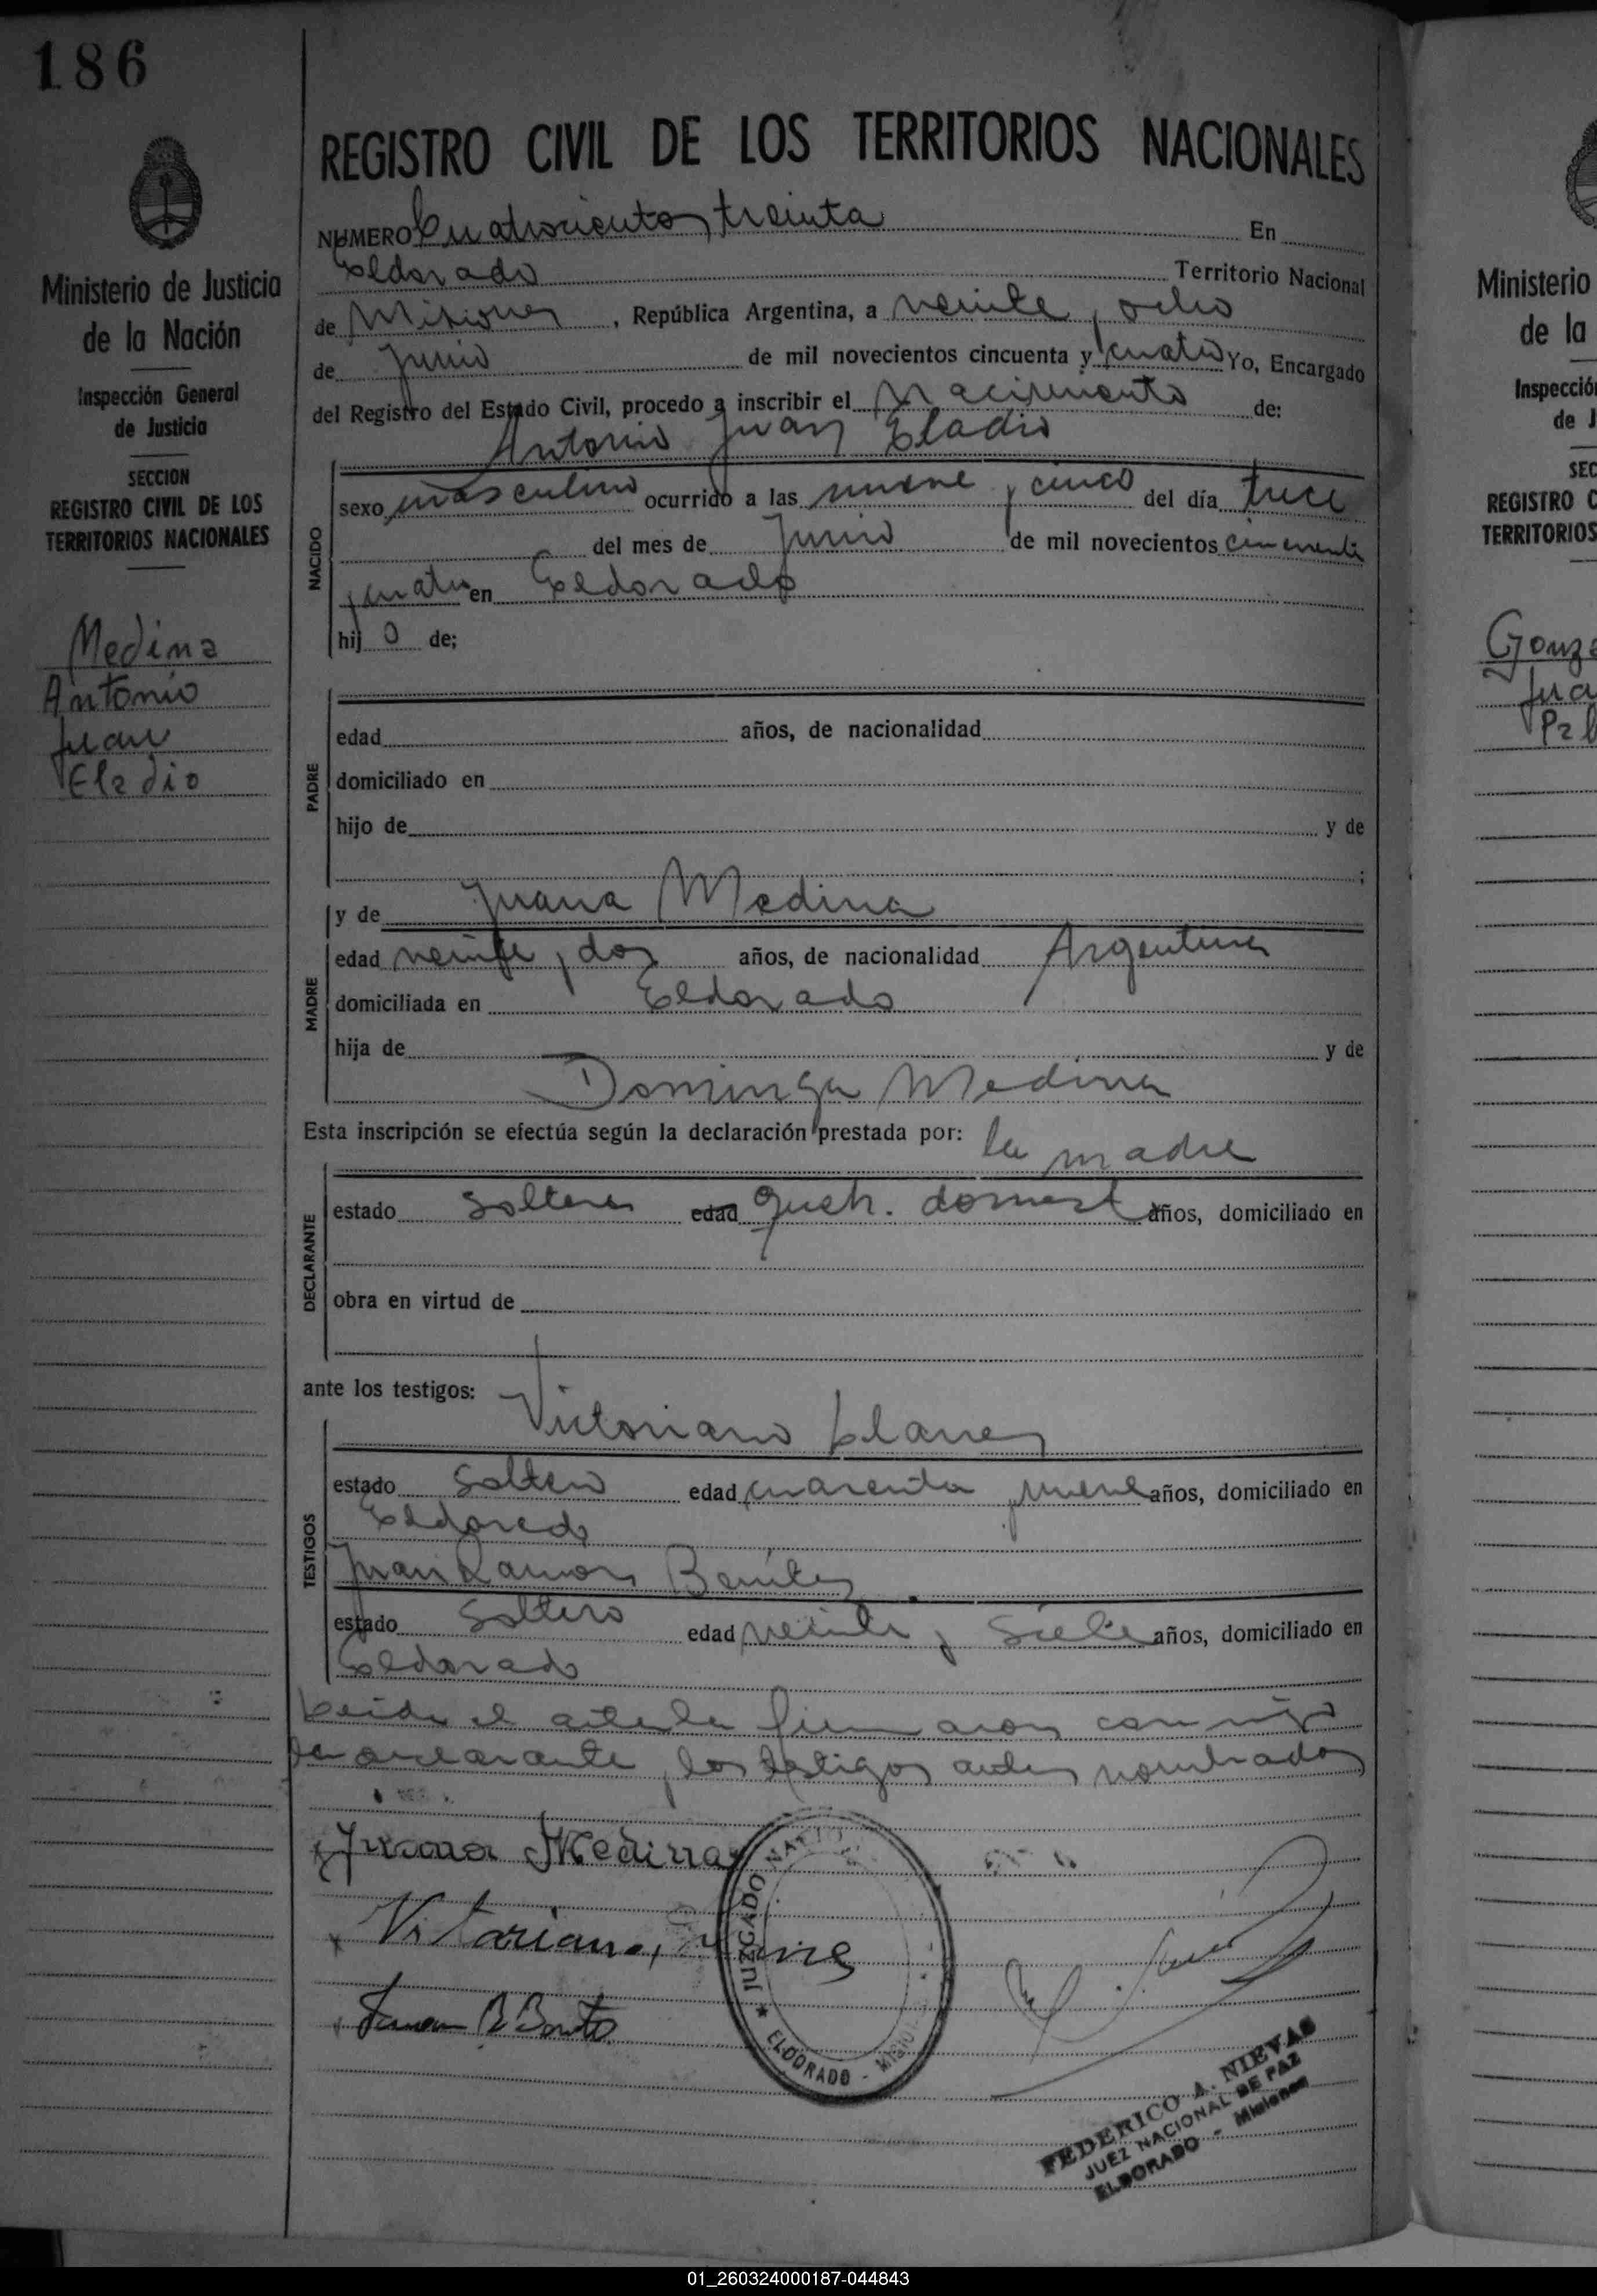 186
REGISTRO CIVIL DE LOS TERRITORIOS NACIONALES
Ministerio de Justicia
de la Nación
Inspección General
de Justicia
SECCION
REGISTRO CIVIL DE LOS
TERRITORIOS NACIONALES
Medina
Antonio
Juan
Eladio
NUMERO Cuatrocientos treinta En
Eldorado Territorio Nacional
de Misiones, República Argentina, a veinte y ocho
de Junio de mil novecientos cincuenta y cuatro Yo, Encargado
del Registro del Estado Civil, procedo a inscribir el nacimiento de:
Antonio Juan Eladio
NACIDO
sexo masculino ocurrido a las nueve y cinco del día trece
del mes de Junio de mil novecientos cincuenta
y cuatro en Eldorado
hij o de;
PADRE
edad años, de nacionalidad
domiciliado en
hijo de y de
;
MADRE
y de Juana Medina
edad veinte y dos años, de nacionalidad Argentina
domiciliada en Eldorado
hija de y de
Dominga Medina
Esta inscripción se efectúa según la declaración prestada por: la madre
DECLARANTE
estado soltera edad queh. domest años, domiciliado en
obra en virtud de
ante los testigos:
Victoriano Llanes
TESTIGOS
estado soltero edad cuarenta y nueve años, domiciliado en
Eldorado
Juan Ramon Benitez
estado soltero edad veinte y siete años, domiciliado en
Eldorado
Leida el acta la firmaron conmigo
la declarante y los testigos antes nombrados
Juana Medina
Vitoriano
Juan B Benito
JUZGADO NACIO
ELDORADO - Misiones
FEDERICO A. NIEVAS
JUEZ NACIONAL DE PAZ
ELDORADO - Misiones
Ministerio
de la
Inspecció
de J
SEC
REGISTRO C
TERRITORIOS
Gonza
Jua
Pabl
01_260324000187-044843